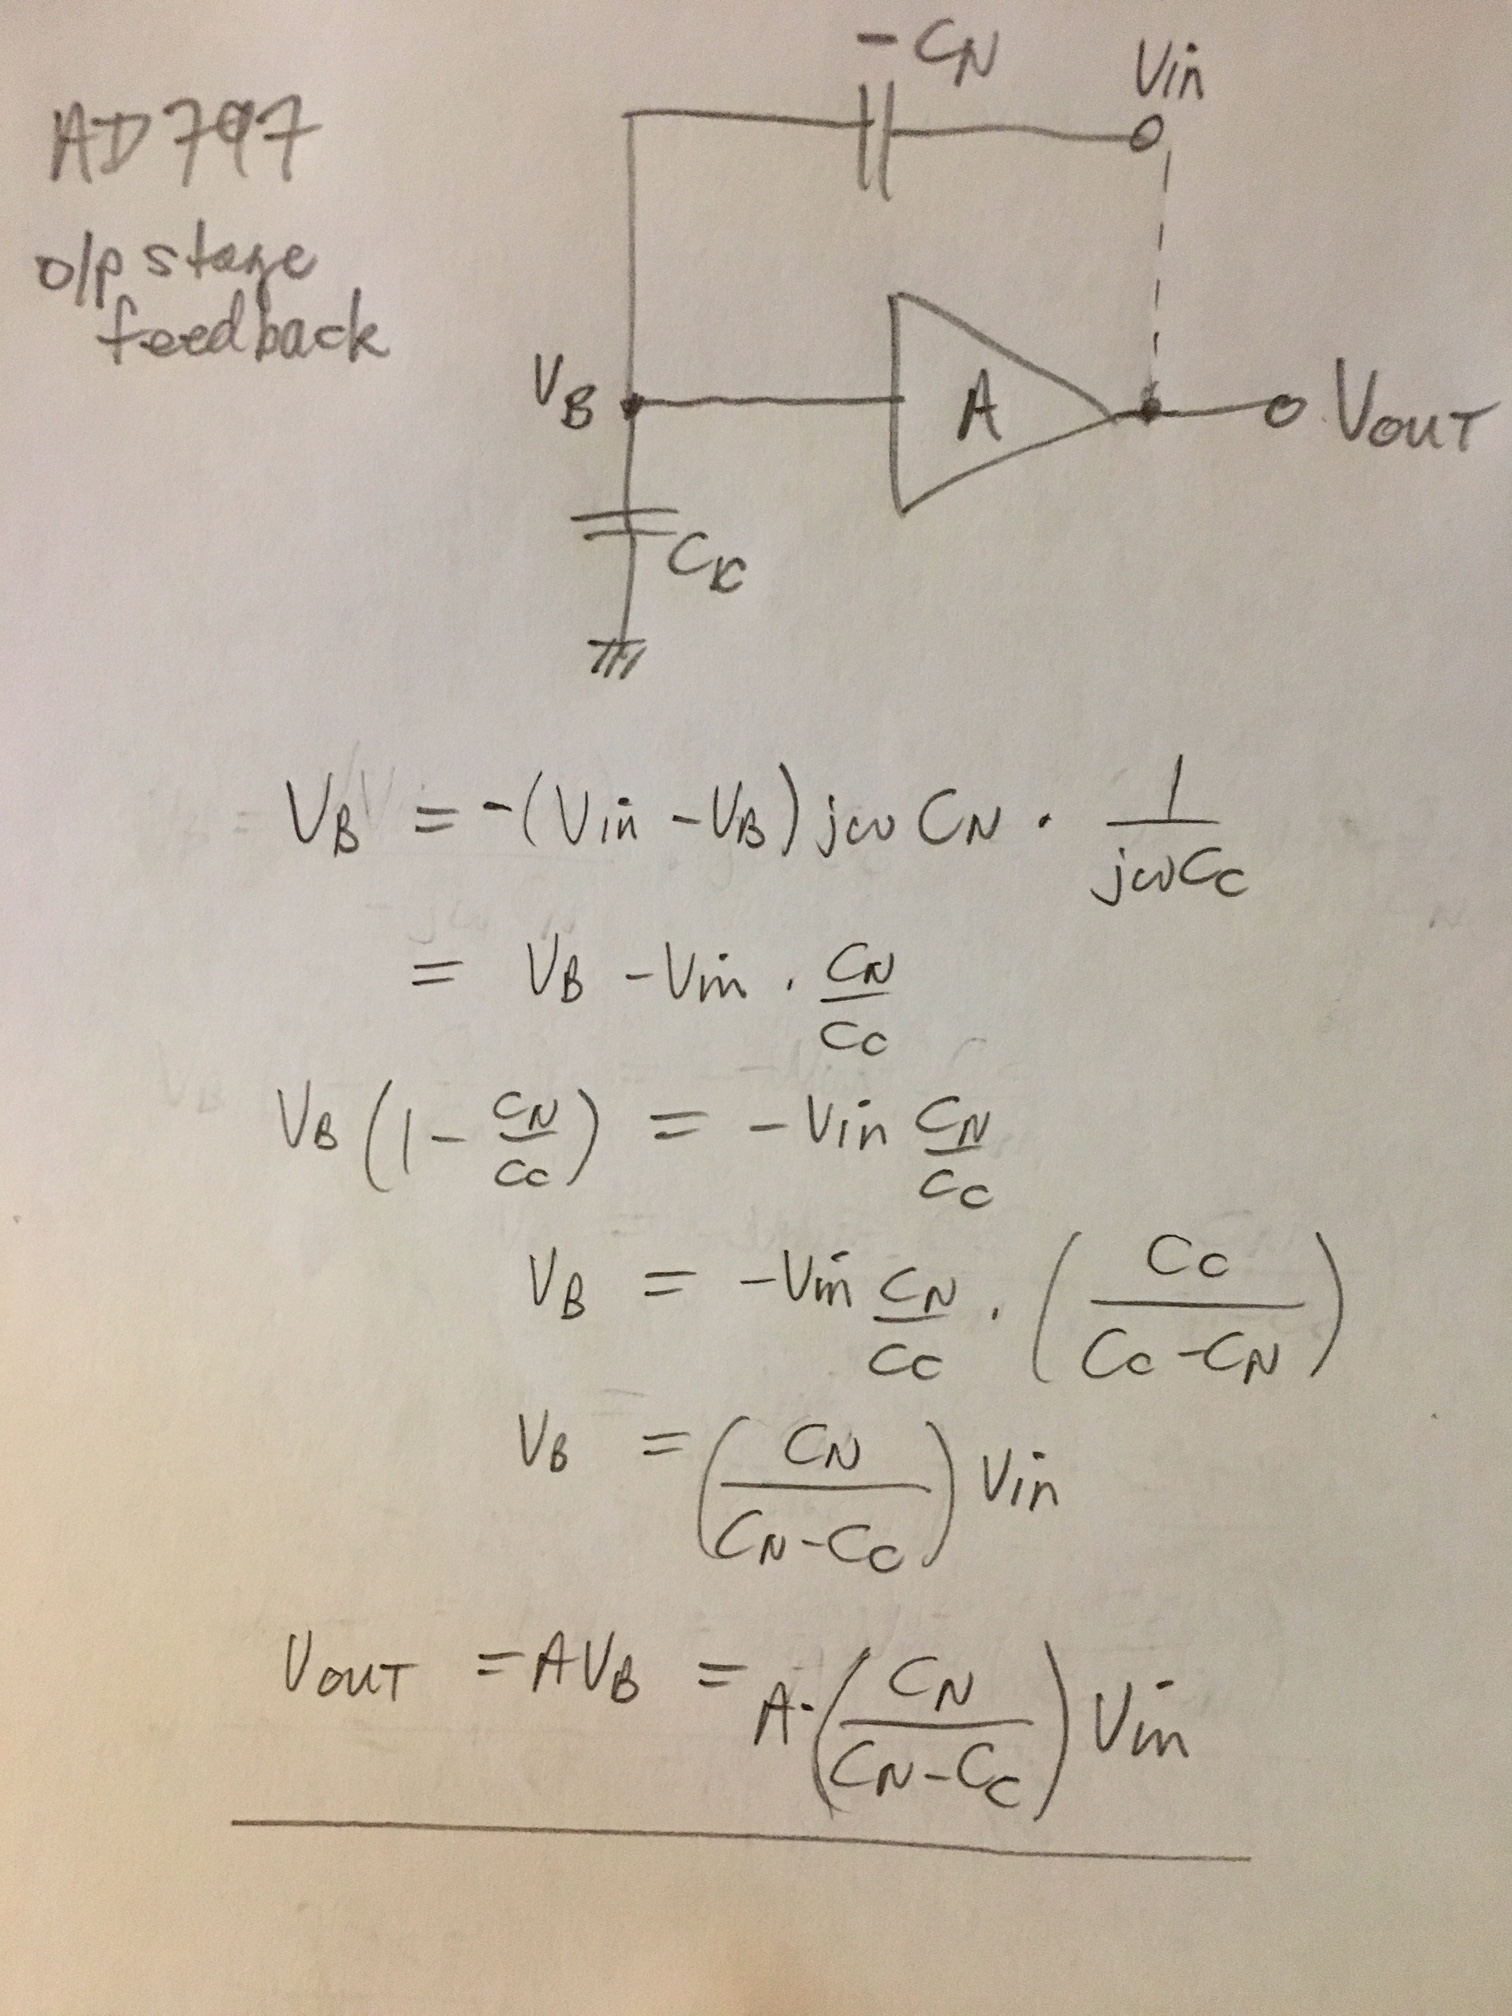 AD797
o/p stage
feedback
-CN
Vin
VB
A
VOUT
CC
VB = -(Vin - VB) jω CN · 1/jωCC
= VB - Vin · CN/CC
VB (1 - CN/CC) = -Vin CN/CC
VB = -Vin CN/CC · (CC/(CC - CN))
VB = (CN/(CN - CC)) Vin
VOUT = AVB = A · (CN/(CN - CC)) Vin